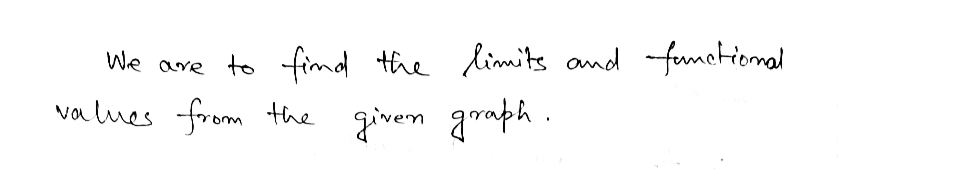 We are to find the limits and functional
values from the given graph.